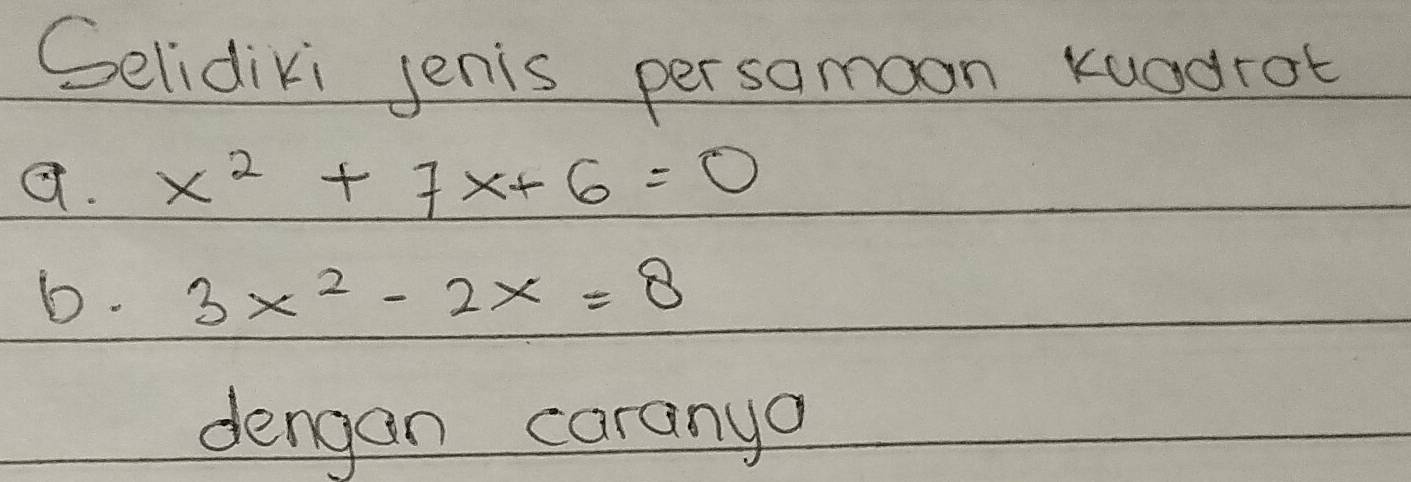 Selidiki jenis persamaan kuadrat
a. x² + 7x + 6 = 0
b. 3x² - 2x = 8
dengan caranya